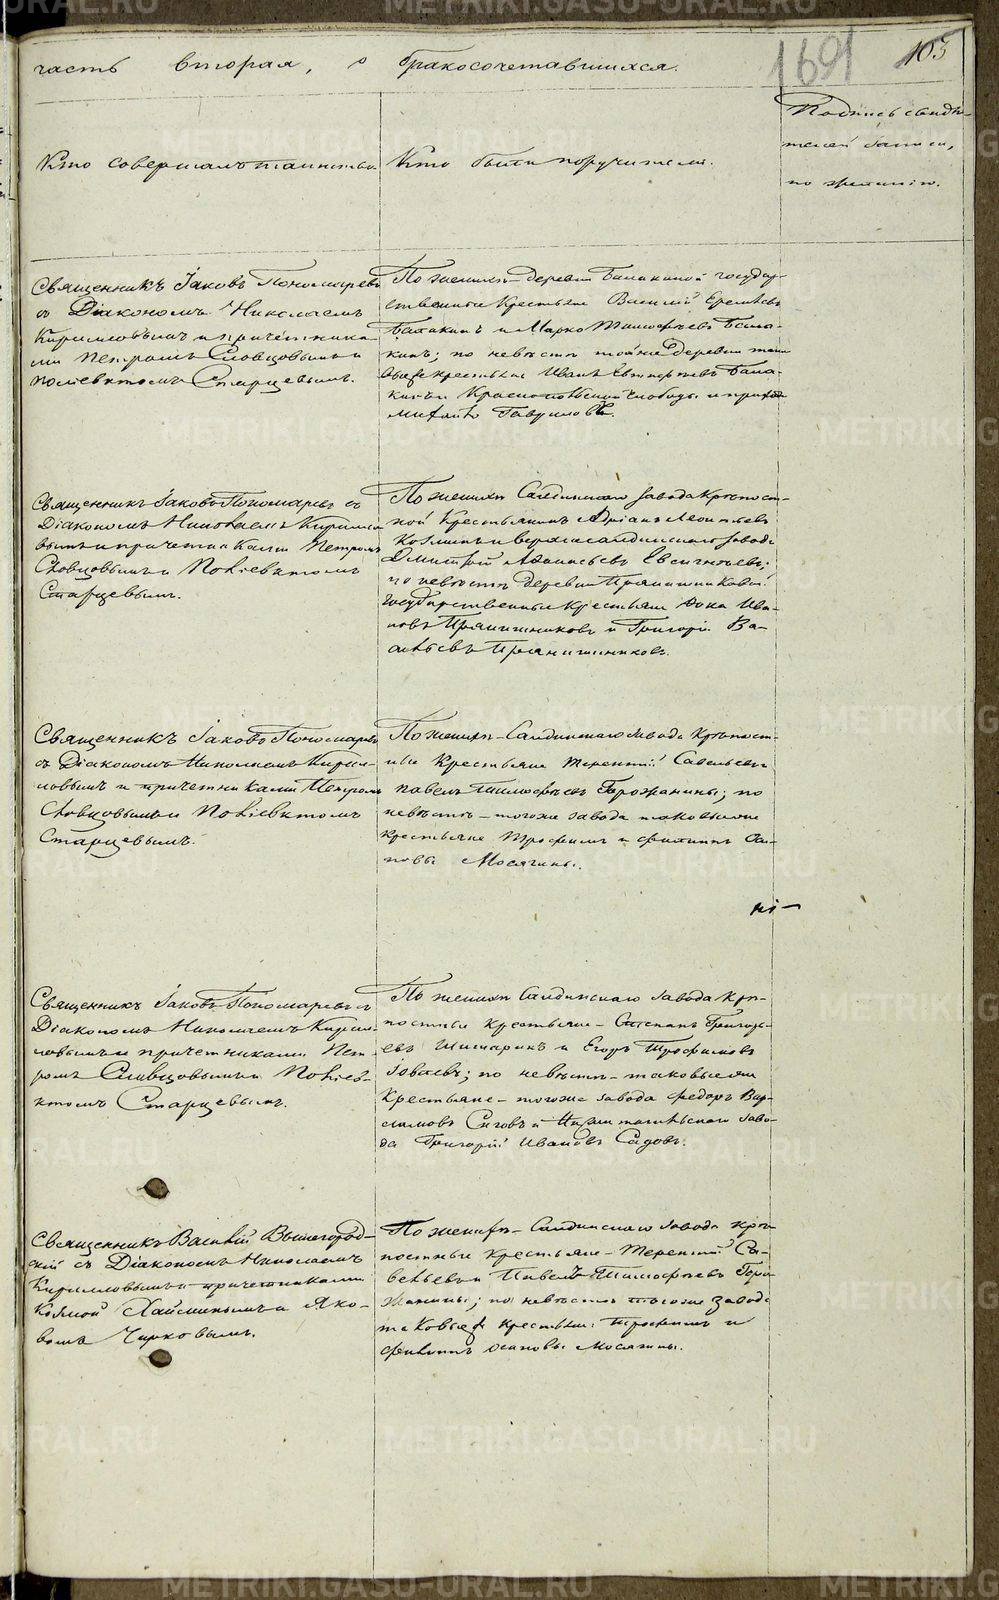 часть вторая, о бракосочетавшихся.
1691
103
Кто совершалъ таинство
Кто были поручители.
Подпись свидѣ-
телей записи,
по желанію.
Священникъ Іаковъ Пономаревъ
съ Діакономъ Николаемъ
Кирилловымъ и причетника-
ми Петромъ Словцовымъ и
Поліевктомъ Старцевымъ.
По женихѣ деревни Балакиной государ-
ственные крестьяне Василій Еремѣевъ
Балакинъ и Марко Тимофѣевъ Бала-
кинъ; по невѣстѣ той же деревни
крестьяне Иванъ Бала-
кинъ и Краснопольской слободы
Гавриловъ.
Священникъ Іаковъ Пономаревъ съ
Діакономъ Николаемъ Кирилло-
вымъ и причетниками Петромъ
Словцовымъ и Поліевктомъ
Старцевымъ.
По женихѣ Салдинскаго завода крѣпост-
ной крестьянинъ Адріанъ Леонтьевъ
и верхнесалдинскаго завода
Дмитрій Евсигнѣевъ;
по невѣстѣ деревни Прянишниковой
государственные крестьяне Фока Ива-
новъ Прянишниковъ и Григорій Ва-
сильевъ Прянишниковъ.
Священникъ Іаковъ Пономаревъ
съ Діакономъ Николаемъ Кирил-
ловымъ и причетниками Петромъ
Словцовымъ и Поліевктомъ
Старцевымъ.
По женихѣ Салдинскаго завода крѣпост-
ные крестьяне Терентій Савельевъ
Павелъ Тимофѣевъ Горожанины; по
невѣстѣ тогоже завода таковые же
крестьяне Трофимъ и Филипъ Оси-
повы Мосягины.
Священникъ Іаковъ Пономаревъ съ
Діакономъ Николаемъ Кирил-
ловымъ и причетниками Пет-
ромъ Словцовымъ и Поліев-
ктомъ Старцевымъ.
По женихѣ Салдинскаго завода крѣ-
постные крестьяне Степанъ Григорь-
евъ Шимаринъ и Егоръ Трофимовъ
по невѣстѣ таковые же
крестьяне тогоже завода Федоръ Вар-
ламовъ Сиговъ и Нижнетагильскаго заво-
да Григорій Ивановъ Садовъ.
Священникъ Василій Вышегород-
скій съ Діакономъ Николаемъ
Кирилловымъ и причетниками
Козмой Хайминымъ и Яко-
вомъ Чирковымъ.
По женихѣ Салдинскаго завода крѣ-
постные крестьяне Терентій Са-
вельевъ и Павелъ Тимофѣевъ Горо-
жанины; по невѣстѣ тогоже завода
таковые крестьяне: Трофимъ и
Филипъ Осиповы Мосягины.
METRIKI.GASO-URAL.RU